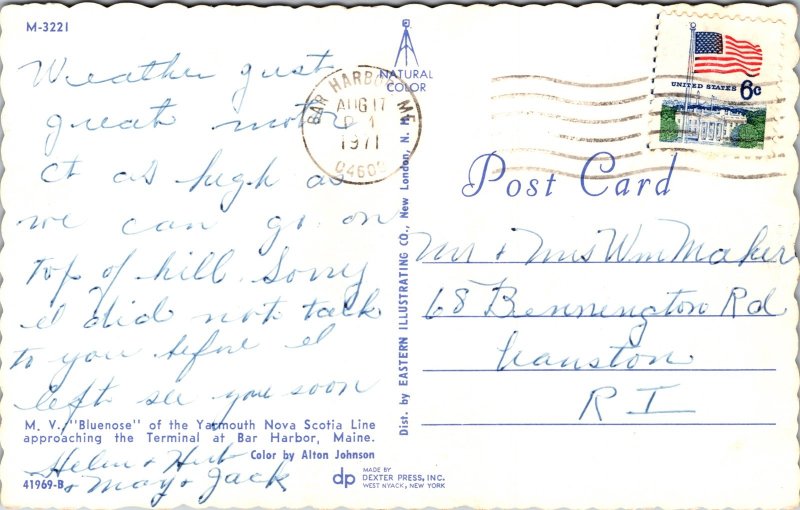 M-3221
Weather just
great motor
ct as high as
we can go on
top of hill. Sorry
I did not talk
to you before I
left see you soon
M. V. "Bluenose" of the Yarmouth Nova Scotia Line
approaching the Terminal at Bar Harbor, Maine.
Color by Alton Johnson
Helen & Hub
& May & Jack
41969-B
NATURAL
COLOR
BAR HARBOR ME
AUG 17
1971
04609
Dist. by EASTERN ILLUSTRATING CO., New London, N. H.
dp
MADE BY
DEXTER PRESS, INC.
WEST NYACK, NEW YORK
UNITED STATES 6c
Post Card
Mr & Mrs Wm Maker
68 Bennington Rd
Cranston
R I